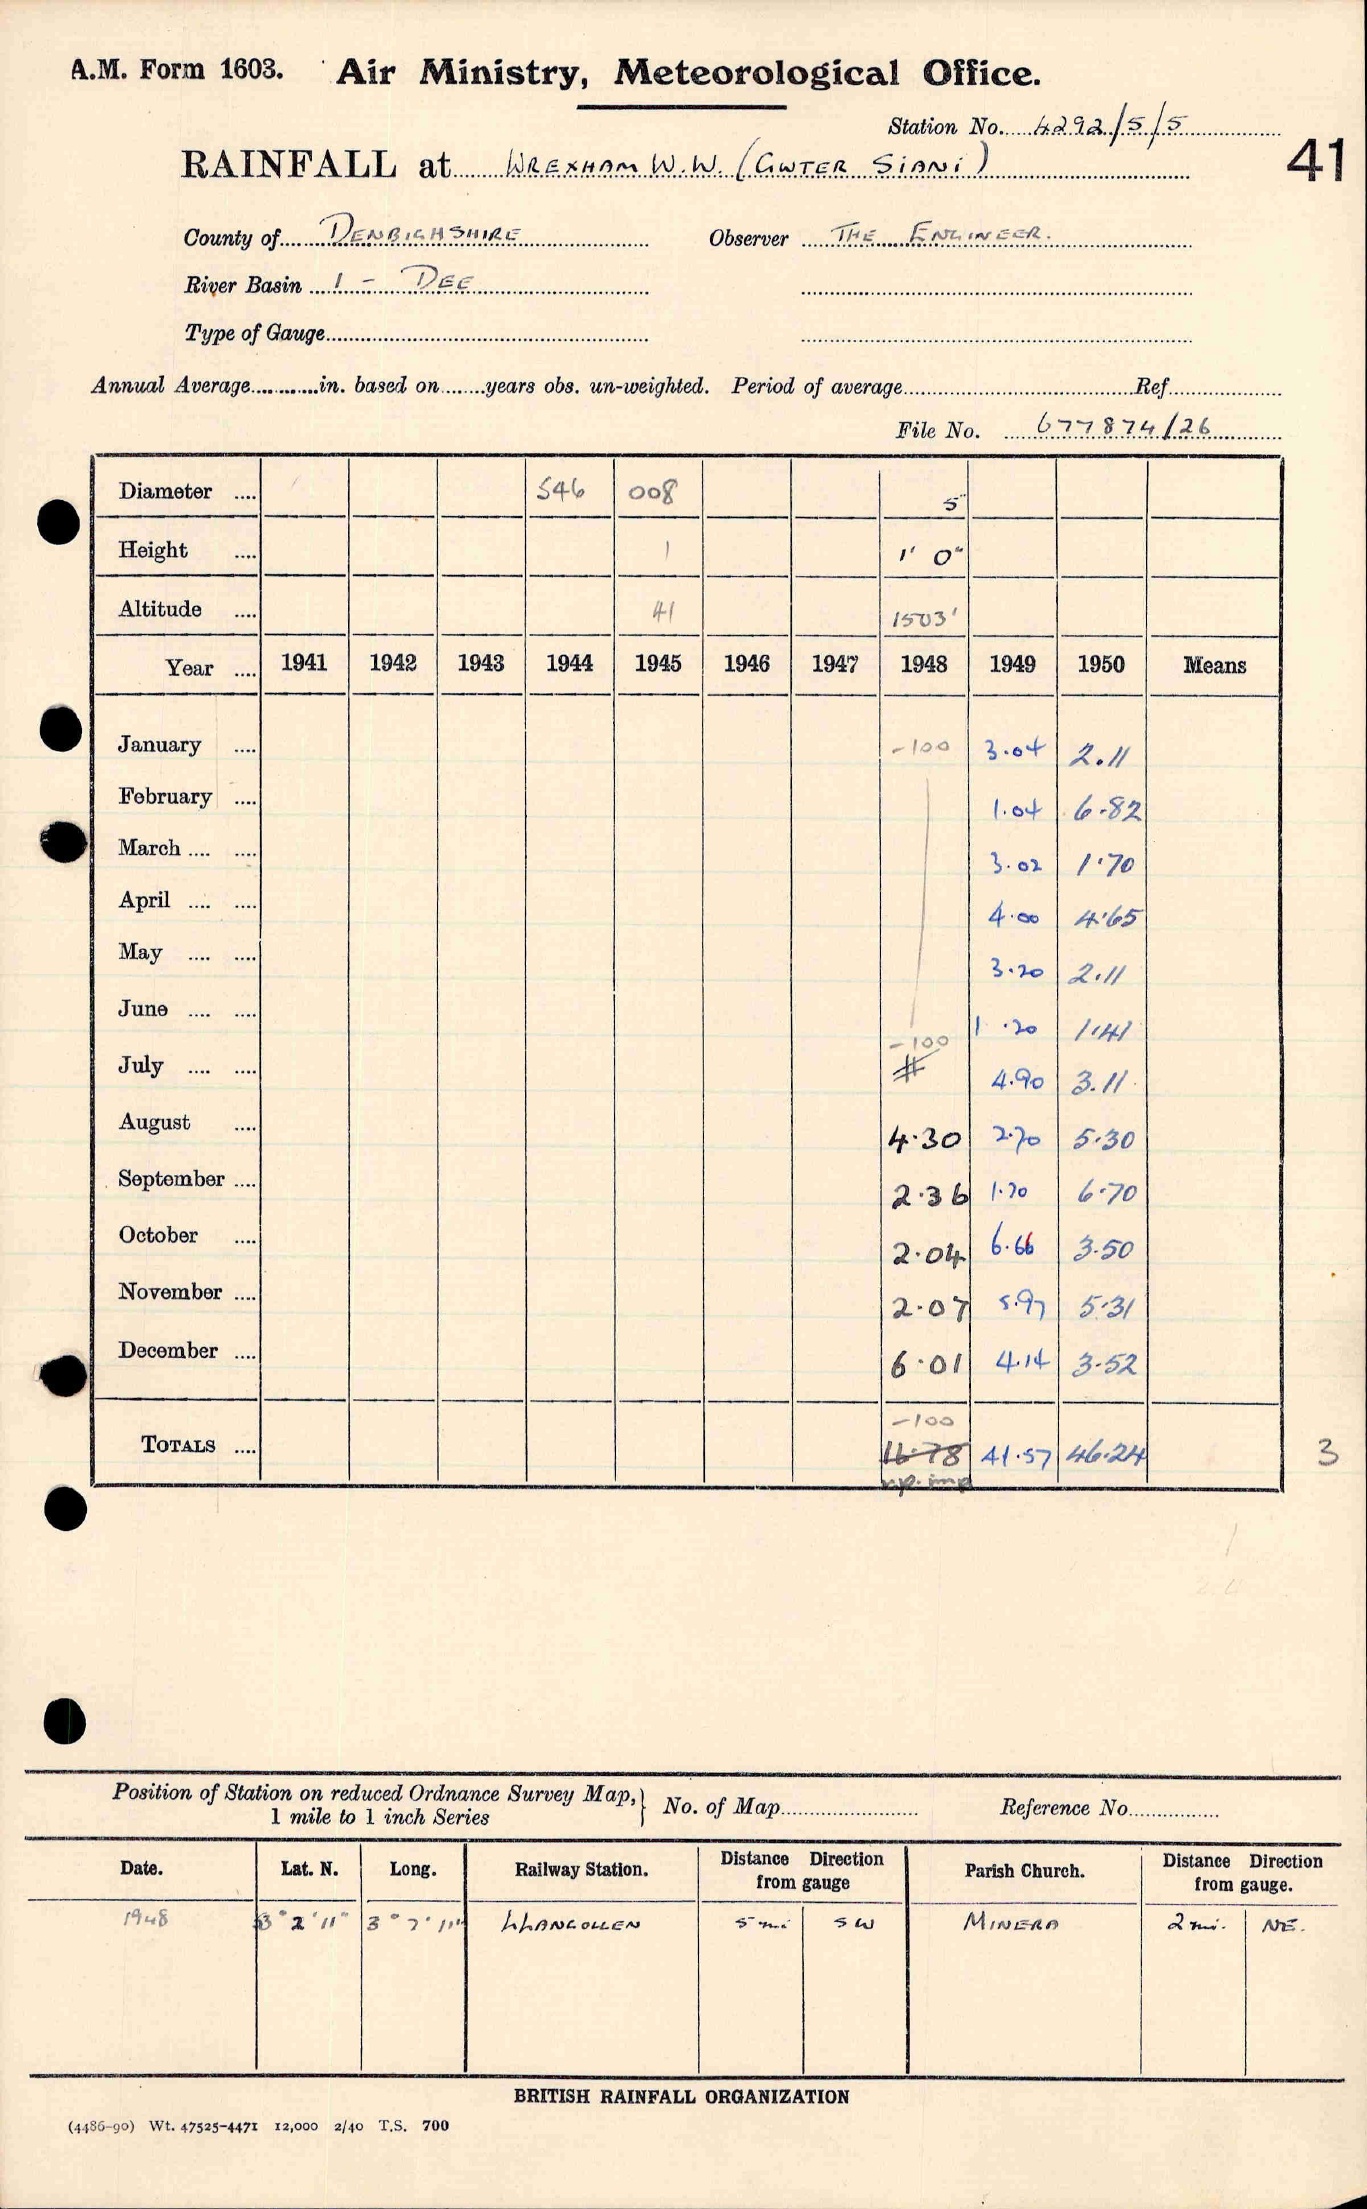 A.M. Form 1603. Air Ministry, Meteorological Office.
Station No. 4292/5/5
RAINFALL at WREXHAM W.W. (GWTER SIANI)
41
County of DENBIGHSHIRE Observer THE ENGINEER.
River Basin 1 - DEE
Type of Gauge
Annual Average in. based on years obs. un-weighted. Period of average Ref
File No. 677874/26
Diameter .... 546 008 5"
Height .... 1 1' 0"
Altitude .... 41 1503'
Year .... 1941 1942 1943 1944 1945 1946 1947 1948 1949 1950 Means
January .... -100 3.04 2.11
February .... 1.04 6.82
March .... .... 3.02 1.70
April .... .... 4.00 4.65
May .... .... 3.20 2.11
June .... .... -100 1.20 1.41
July .... .... # 4.90 3.11
August .... 4.30 2.70 5.30
September .... 2.36 1.70 6.70
October .... 2.04 6.66 3.50
November .... 2.07 5.97 5.31
December .... 6.01 4.14 3.52
-100
TOTALS .... 16.78 41.57 46.24 3
Position of Station on reduced Ordnance Survey Map,
1 mile to 1 inch Series
No. of Map Reference No.
Date. Lat. N. Long. Railway Station. Distance Direction from gauge Parish Church. Distance Direction from gauge.
1948 3° 2' 11" 3° 7' 11" LLANGOLLEN 5 mi SW MINERA 2 mi. NE.
BRITISH RAINFALL ORGANIZATION
(4486-90) Wt. 47525-4471 12,000 2/40 T.S. 700